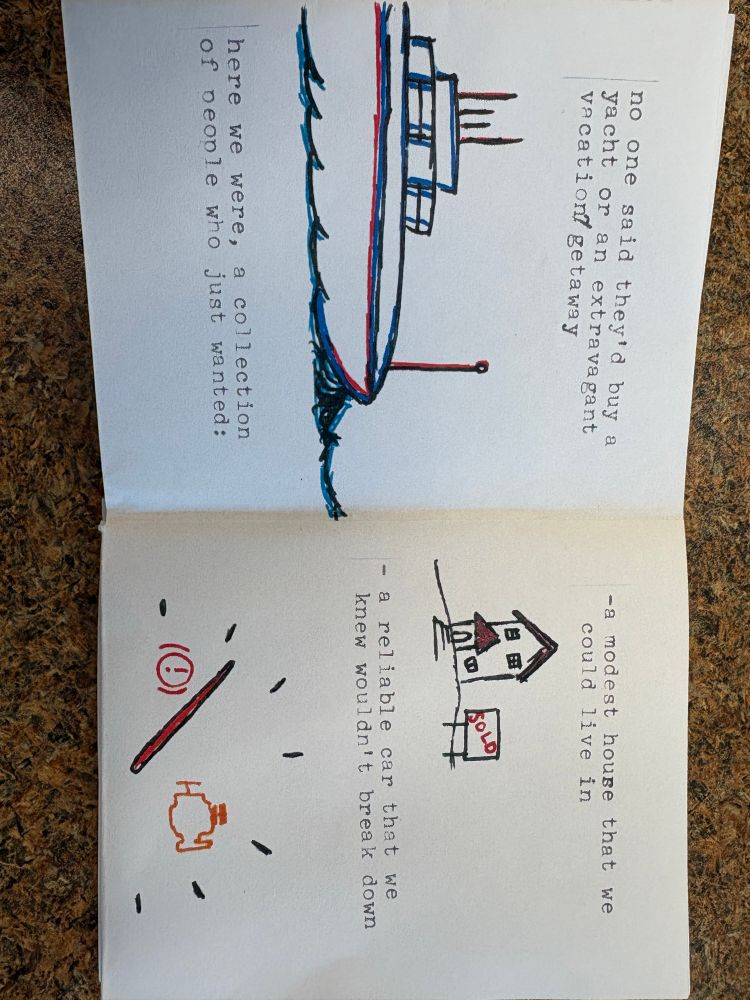 no one said they'd buy a
yacht or an extravagant
vacation/getaway
here we were, a collection
of people who just wanted:
-a modest house that we
could live in
SOLD
- a reliable car that we
knew wouldn't break down
!